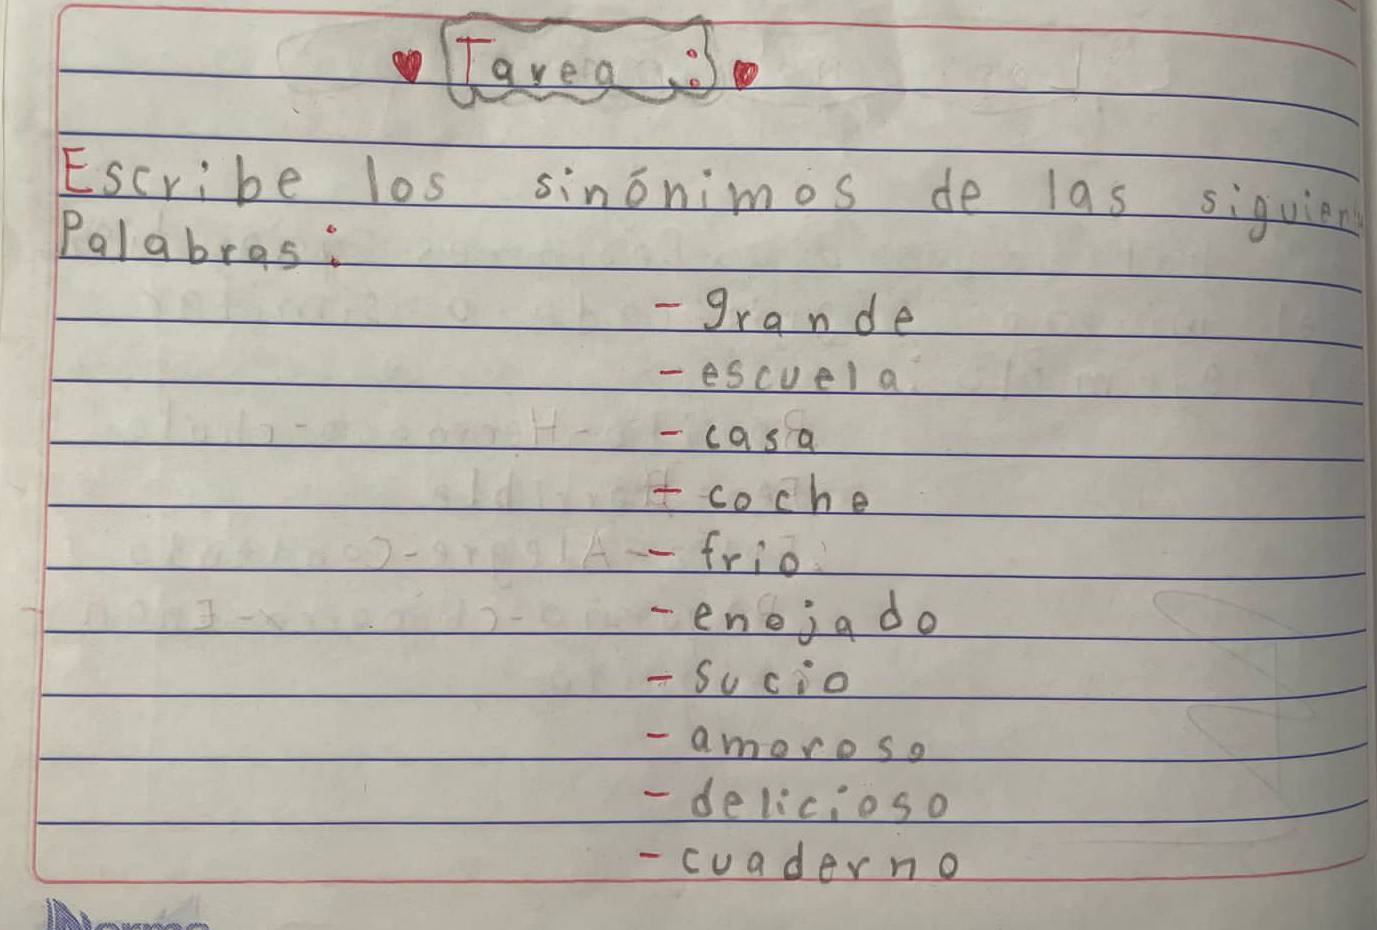 Tarea :
Escribe los sinónimos de las siguien
Palabras:
- grande
- escuela
- casa
- coche
- frio
- enojado
- sucio
- amoroso
- delicioso
- cuaderno
Norma